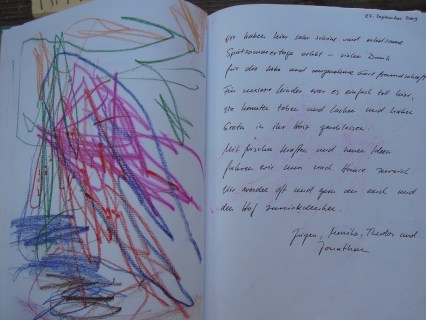 24. September 2003
wir haben hier sehr schöne und erholsame
Spätsommertage erlebt – vielen Dank
für die nette und angenehme Gastfreundschaft.
Für unsere Kinder war es einfach toll hier,
sie konnten toben und lachen und haben
in ihr Herz geschlossen.
Mit frischen Kräften und neuen Ideen
fahren wir nun nach Hause zurück
wir werden oft und gern an euch und
den Hof zurückdenken.
Jürgen, Theodor und
Jonathan